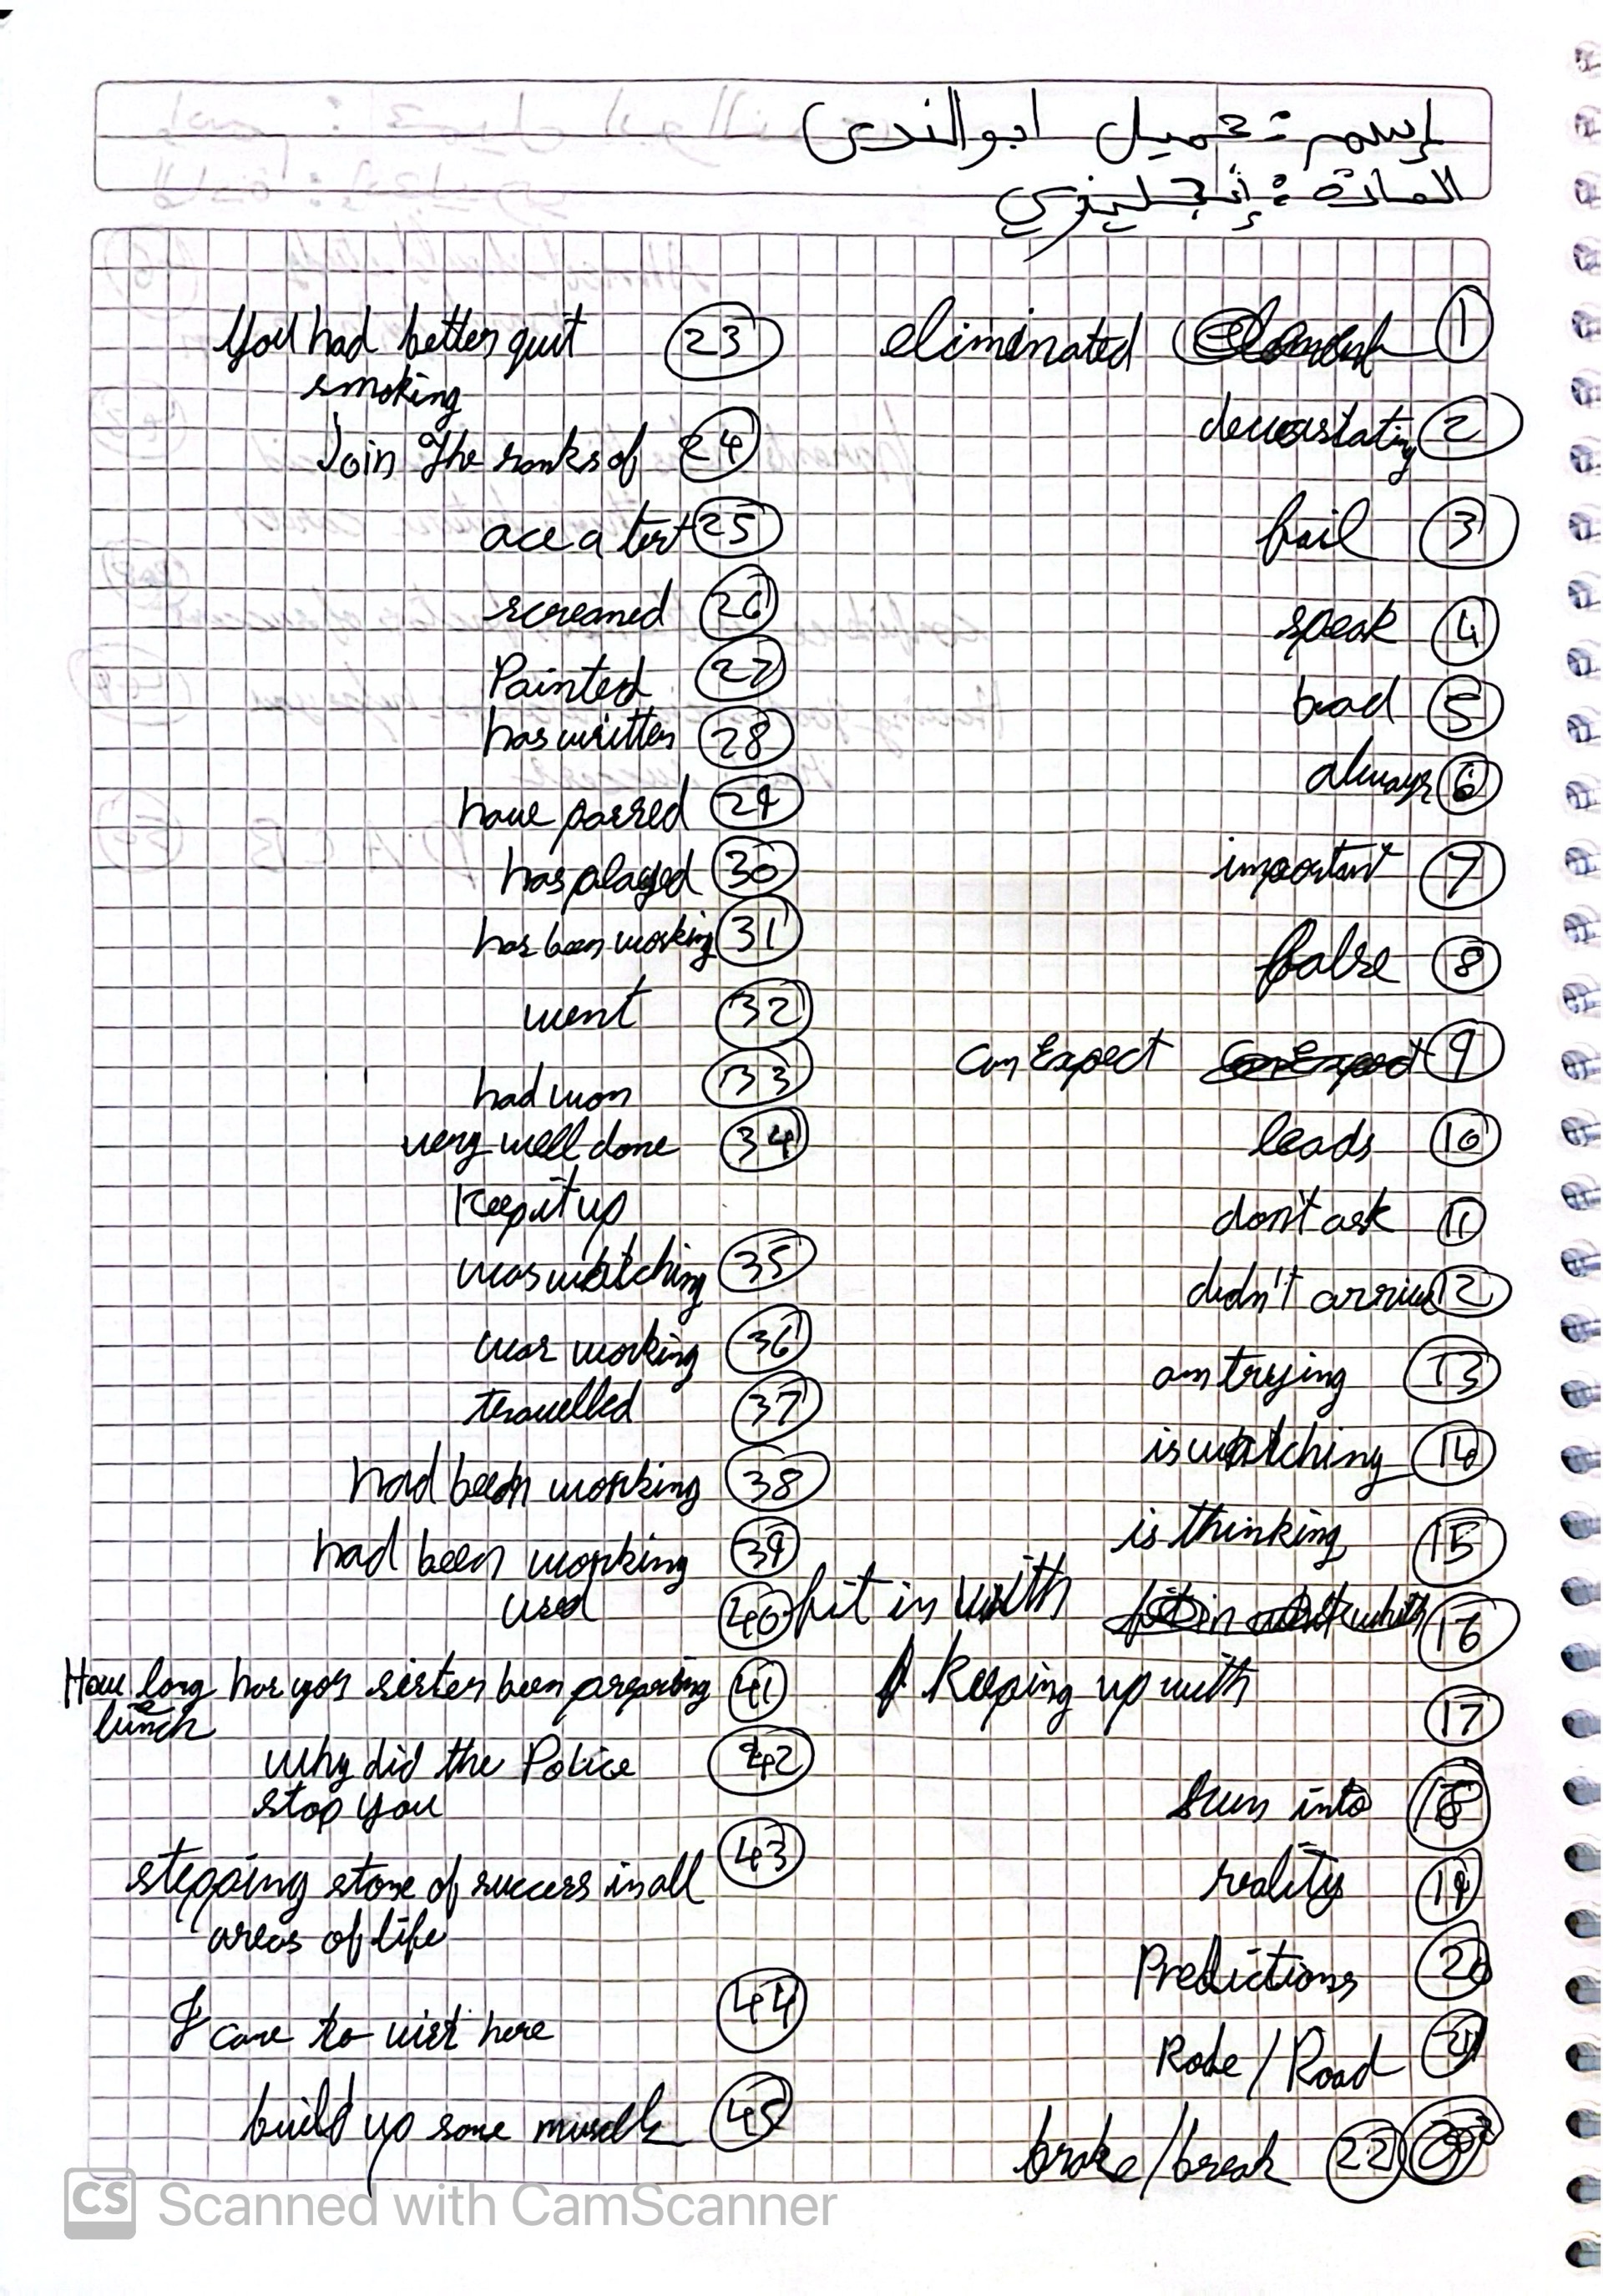 إسم : جميل ابو الندى
المادة : إنجليزي
eliminated ①
devastating ②
fail ③
speak ④
bad ⑤
always ⑥
important ⑦
false ⑧
can Expect ⑨
leads ⑩
don't ask ⑪
didn't arrive ⑫
am trying ⑬
is watching ⑭
is thinking ⑮
fit in with ⑯
Keeping up with ⑰
run into ⑱
reality ⑲
Predictions ⑳
Rode / Road ㉑
broke / break ㉒
You had better quit ㉓
smoking
Join the ranks of ㉔
ace a test ㉕
screamed ㉖
Painted ㉗
has written ㉘
have passed ㉙
has played ㉚
has been working ㉛
went ㉜
had won ㉝
very well done ㉞
Keep it up
was watching ㉟
was working ㊱
travelled ㊲
had been working ㊳
had been working ㊴
used ㊵
How long has your sister been preparing ㊶
lunch
why did the Police ㊷
stop you
stepping stone of success in all ㊸
areas of life
I came to visit here ㊹
build up some muscle ㊺
CS Scanned with CamScanner